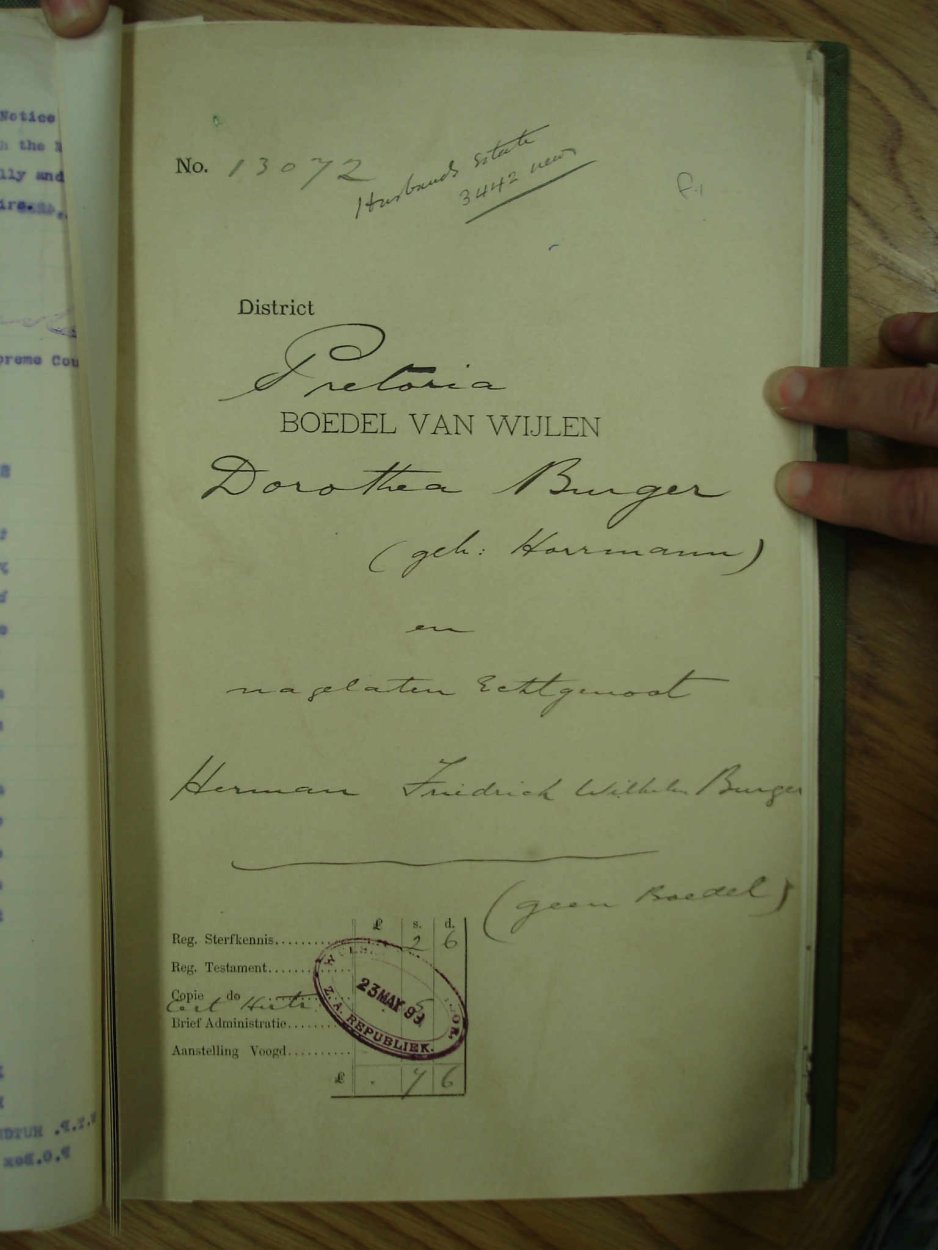 Notice
No. 13072
Husbands Estate
3442 new
District
Pretoria
BOEDEL VAN WIJLEN
Dorothea Burger
(geb: Horrmann)
en
nagelaten Echtgenoot
Herman Friedrich Wilhelm Burger
(geen Boedel)
£ s. d.
Reg. Sterfkennis.......... 2 6
Reg. Testament..........
Copie do 5
Brief Administratie..........
Aanstelling Voogd..........
£ . 7 6
23 MAY 93
Z. A. REPUBLIEK.
P.O.Box